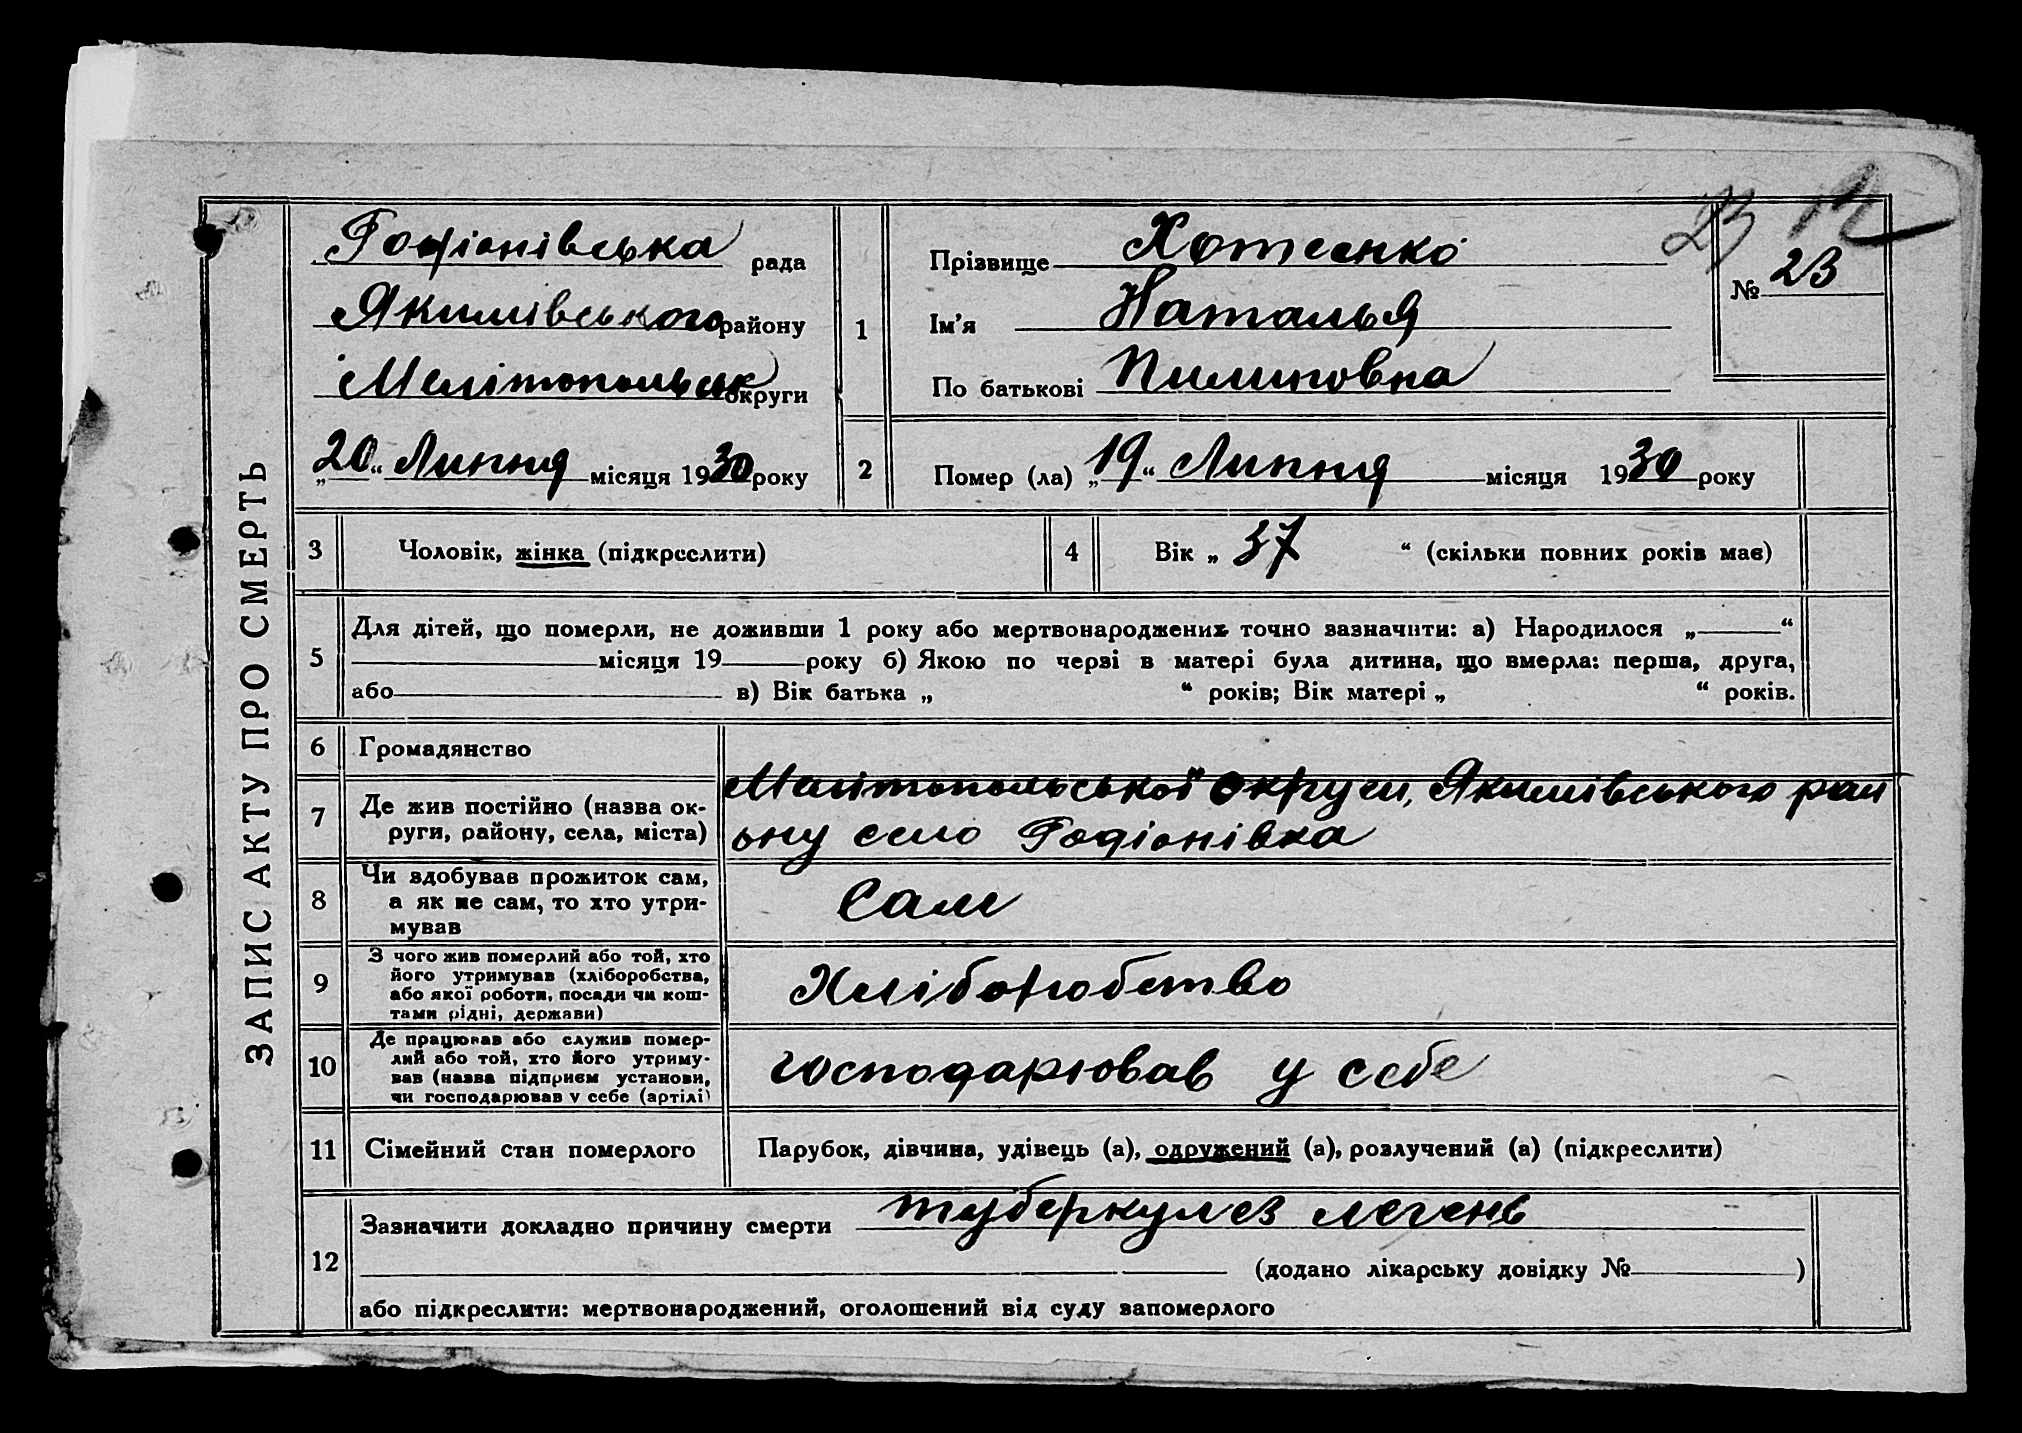 ЗАПИС АКТУ ПРО СМЕРТЬ
Родіонівська рада
Якимівського району
Мелітопольськ округи
„20“ Липня місяця 1930 року
23 12
№ 23
1
Прізвище Хотеєнко
Ім’я Наталья
По батькові Пилиповна
2 Помер (ла) „19“ Липня місяця 1930 року
3 Чоловік, жінка (підкреслити)
4 Вік „ 37 “ (скільки повних років має)
5 Для дітей, що померли, не доживши 1 року або мертвонароджених точно зазначити: а) Народилося „ “
місяця 19 року б) Якою по черві в матері була дитина, що вмерла: перша, друга,
або в) Вік батька „ “ років; Вік матері „ “ років.
6 Громадянство
7 Де жив постійно (назва ок-
руги, району, села, міста)
Мелітопольської округи, Якимівського рай
ону село Родіонівка
8 Чи здобував прожиток сам,
а як не сам, то хто утри-
мував
Сам
9 З чого жив померлий або той, хто
його утримував (хліборобства,
або якої роботи, посади чи кош-
тами рідні, держави)
Хліборобство
10 Де працював або служив помер-
лий або той, хто його утриму-
вав (назва підприєм установи,
чи господарював у себе (артілі)
господарював у себе
11 Сімейний стан померлого Парубок, дівчина, удівець (а), одружений (а), розлучений (а) (підкреслити)
12 Зазначити докладно причину смерти туберкулез легень
(додано лікарську довідку № )
або підкреслити: мертвонароджений, оголошений від суду вапомерлого